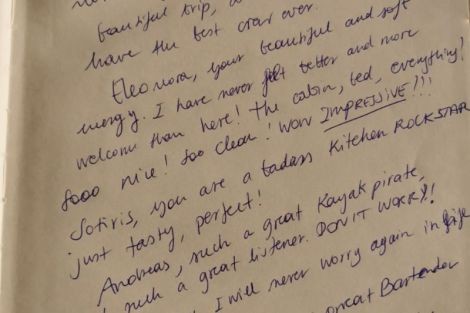 beautiful trip,
have the best crew ever.
Eleonora, your beautiful and soft
energy. I have never felt better and more
welcome than here! The cabin, bed, everything!
sooo nice! soo clean! WOW IMPRESSIVE!!!
Sotiris, you are a badass Kitchen ROCKSTAR
just tasty, perfect!
Andreas, such a great Kayak pirate,
such a great listener. DON'T WORRY!!
I will never worry again in life
great Bartender